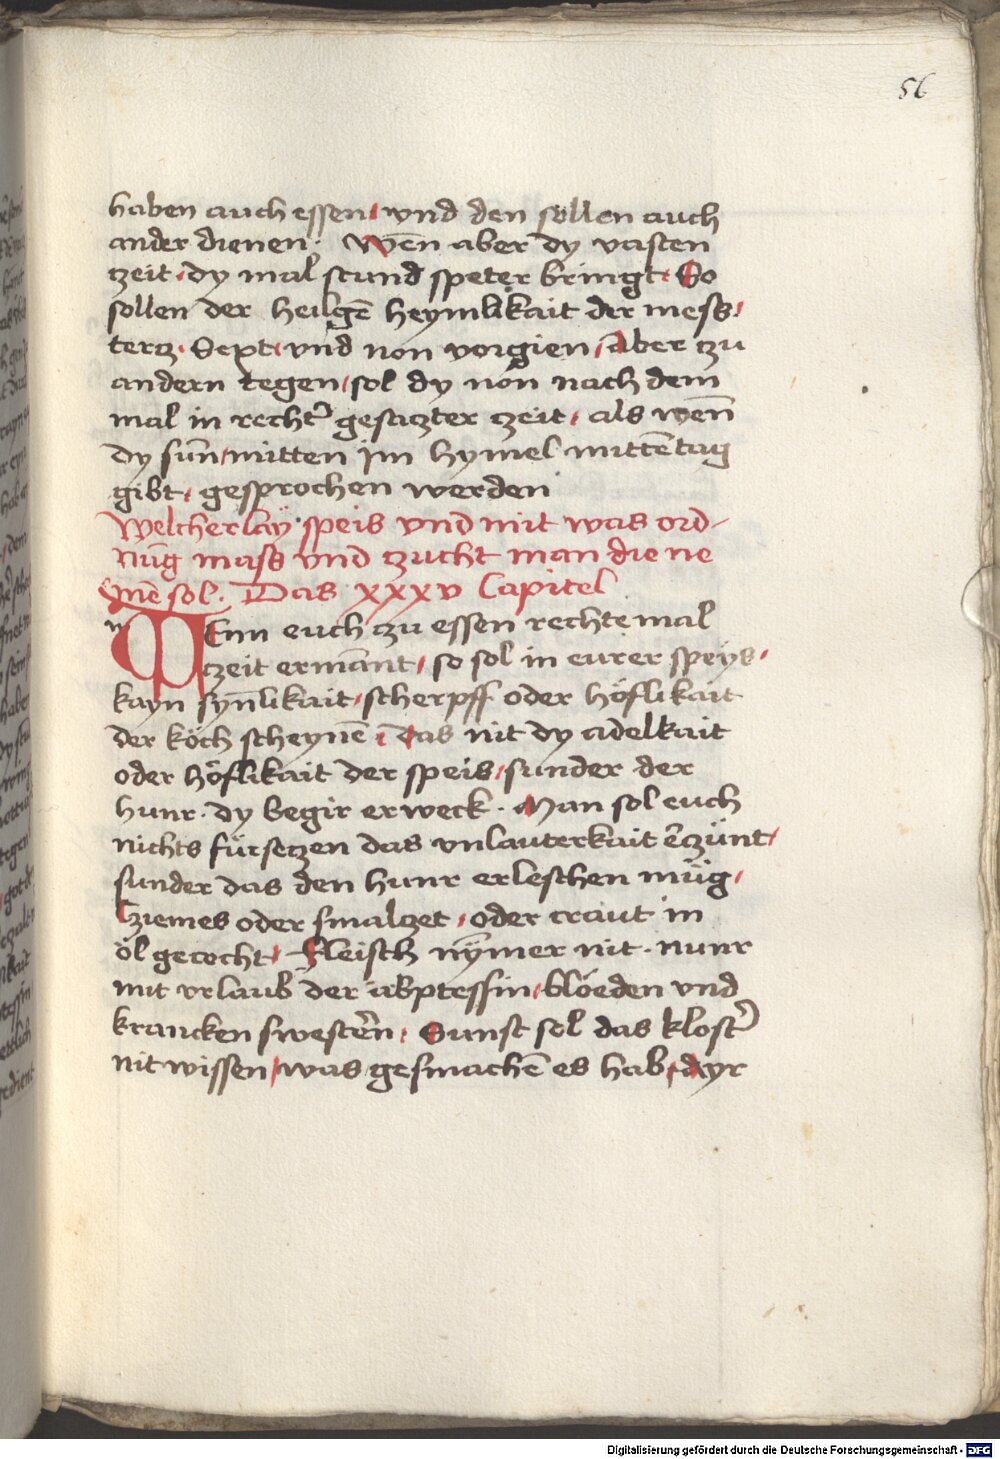 56
haben auch essen, vnd den sollen auch
ander dienen. Wen̄ aber dy vasten
zeit, dy mal stund speter bringt, So
sollen der heilgē heymlikait der mess,
tercz, Sext, vnd non vorgien, Aber zu
andern tegen, sol dy non nach dem
mal in rechter̉ gesaczter zeit, als wen̄
dy sun̄, mitten im hymel mittētag
gibt, gesprochen werden
Welcherlay speis vnd mit was ord-
nūg mass vnd zucht man die ne
mē sol. Das xxxv Capitel
WEnn euch zu essen rechte mal
zeit ermānt, so sol in eurer speys,
kayn syn̄likait, scherpff oder höflikait
der köch scheynē, das nit dy adelkait
oder höflikait der speis, sunder der
hunr. dy begir erweck. Man sol euch
nichts fürseczen das vnlauterkait erczünt,
sunder das den hunr erleschen müg,
Cziemes oder smalczet, oder craut in
öl gecocht, Fleisch nymer nit. nunr
mit vrlaub der abptessin, blöeden vnd
krancken swestern, Sunst sol das kloster̉
nit wissen, was gesmachē es hab, ayr